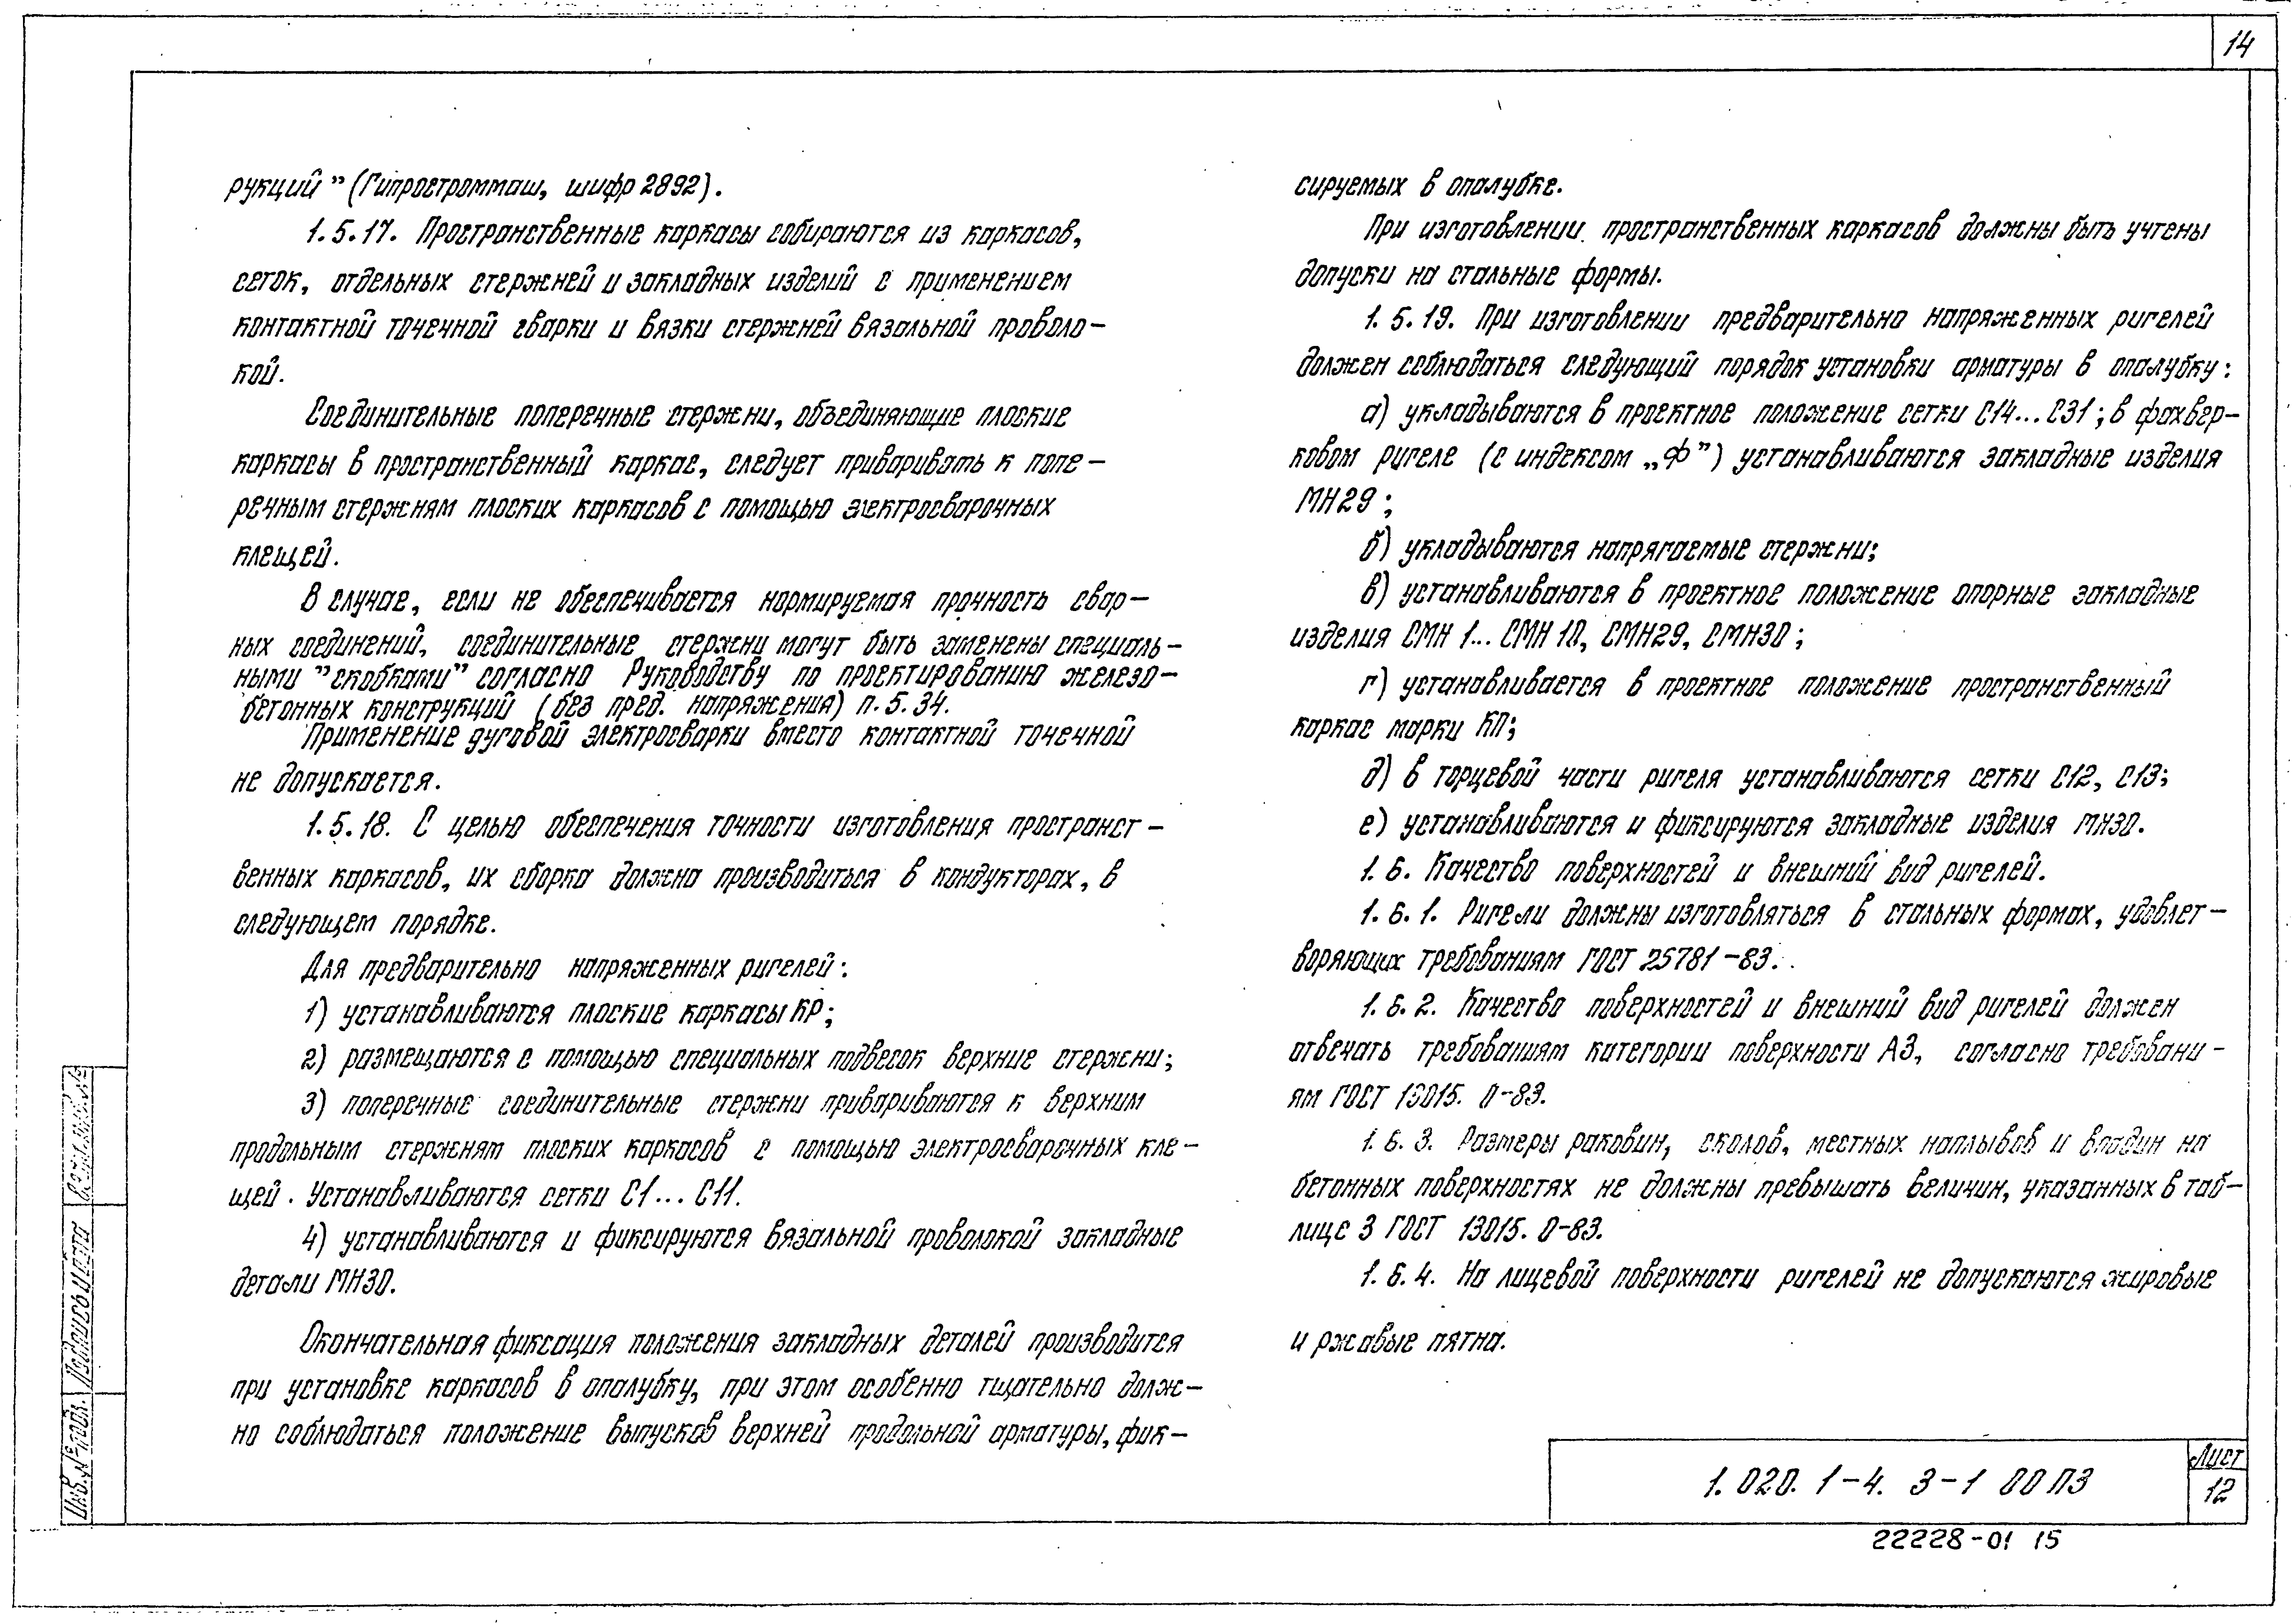 14
рукций" (Гипростроммаш, шифр 2892).
1.5.17. Пространственные каркасы собираются из каркасов,
сеток, отдельных стержней и закладных изделий с применением
контактной точечной сварки и вязки стержней вязальной проволо-
кой.
Соединительные поперечные стержни, объединяющие плоские
каркасы в пространственный каркас, следует приваривать к попе-
речным стержням плоских каркасов с помощью электросварочных
клещей.
В случае, если не обеспечивается нормируемая прочность свар-
ных соединений, соединительные стержни могут быть заменены специаль-
ными "скобками" согласно Руководству по проектированию железо-
бетонных конструкций (без пред. напряжения) п.5.34.
Применение дуговой электросварки вместо контактной точечной
не допускается.
1.5.18. С целью обеспечения точности изготовления пространст-
венных каркасов, их сборка должна производиться в кондукторах, в
следующем порядке.
Для предварительно напряженных ригелей:
1) устанавливаются плоские каркасы КР;
2) размещаются с помощью специальных подвесок верхние стержни;
3) поперечные соединительные стержни привариваются к верхним
продольным стержням плоских каркасов с помощью электросварочных кле-
щей. Устанавливаются сетки С1...С11.
4) устанавливаются и фиксируются вязальной проволокой закладные
детали МН30.
Окончательная фиксация положения закладных деталей производится
при установке каркасов в опалубку, при этом особенно тщательно долж-
но соблюдаться положение выпусков верхней продольной арматуры, фик-
сируемых в опалубке.
При изготовлении пространственных каркасов должны быть учтены
допуски на стальные формы.
1.5.19. При изготовлении предварительно напряженных ригелей
должен соблюдаться следующий порядок установки арматуры в опалубку:
а) укладываются в проектное положение сетки С14...С31; в фахвер-
ковом ригеле (с индексом „Ф") устанавливаются закладные изделия
МН29;
б) укладываются напрягаемые стержни;
в) устанавливаются в проектное положение опорные закладные
изделия СМН 1... СМН 10, СМН29, СМН30;
г) устанавливается в проектное положение пространственный
каркас марки КП;
д) в торцевой части ригеля устанавливаются сетки С12, С13;
е) устанавливаются и фиксируются закладные изделия МН30.
1.6. Качество поверхностей и внешний вид ригелей.
1.6.1. Ригели должны изготовляться в стальных формах, удовлет-
воряющих требованиям ГОСТ 25781-83.
1.6.2. Качество поверхностей и внешний вид ригелей должен
отвечать требованиям категории поверхности А3, согласно требовани-
ям ГОСТ 13015.0-83.
1.6.3. Размеры раковин, сколов, местных наплывов и впадин на
бетонных поверхностях не должны превышать величин, указанных в таб-
лице 3 ГОСТ 13015.0-83.
1.6.4. На лицевой поверхности ригелей не допускаются жировые
и ржавые пятна.
Инв. № подл.
Подпись и дата
Взам. инв. №
1.020.1-4. 3-1 00 ПЗ
Лист
12
22228-01 15